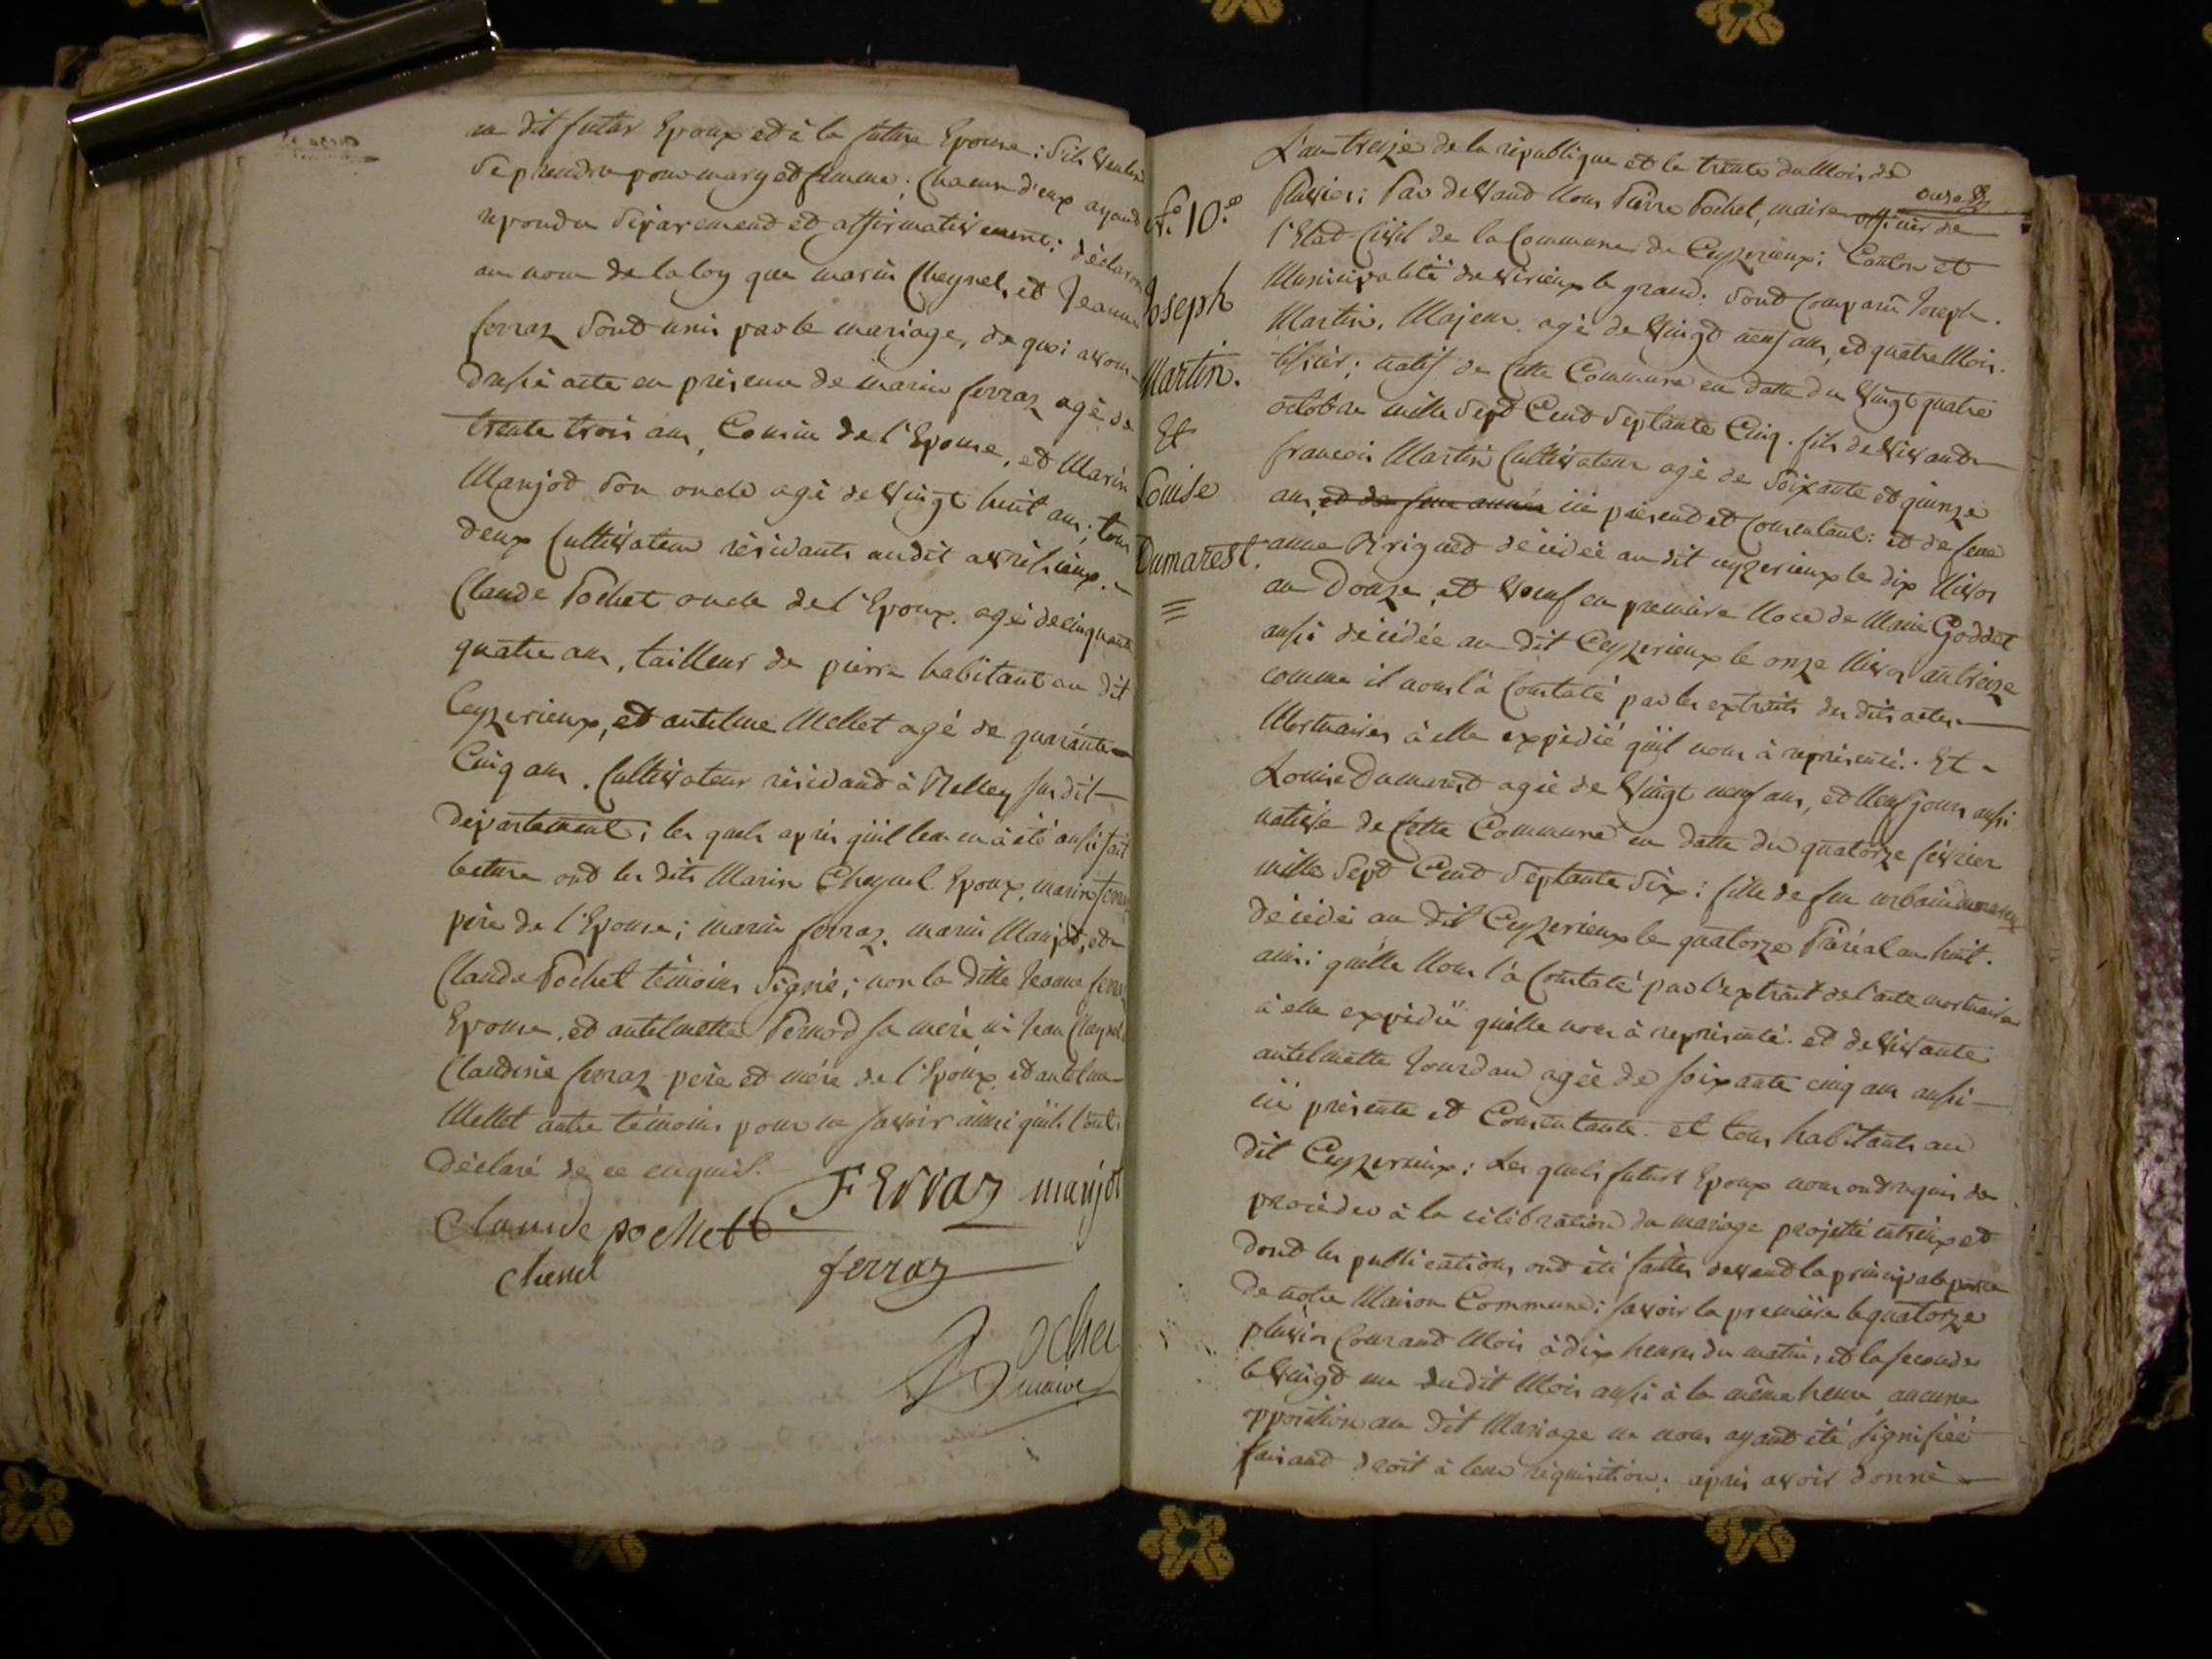 au dit futur Epoux et à la future Epouse; s'ils veulent
se prendre pour mary et femme; Chacun d'eux ayand
repondu séparemend et affirmativement; déclarons
au nom de la loy que marin Cheynel, et Jeanne
ferraz sond unis par le mariage, de quoi avons
dressé acte en présence de marin ferraz agé de
trente trois ans, Cousin de l'Epouse, et Marin
Manjod son oncle agé de vingt huit ans; tous
deux Cultivateurs résidants audit avrissieux.
Claude Pochet oncle de l'Epoux, agé de cinquante
quatre ans, tailleur de pierre habitant au dit
Ceyzerieux, et antelme Mellet agé de quarante
Cinq ans. Cultivateur résidand à Belley susdit
département; les quels après qu'il leur en à été aussi fait
lecture ond les dits Marin Cheynel Epoux, marin ferraz
père de l'Epouse; marin ferraz, marin Manjod, et
Claude Pochet témoins signé; non la ditte Jeanne ferraz
Epouse, et antelmette Pernod sa mère ni Jean Cheynel
Claudine ferraz père et mère de l'Epoux, et antelme
Mellet autre témoins pour ne savoir ainsi qu'ils l'ont
déclaré de ce enquis.
FErraz manjot
Claude pochet
chenel ferraz
Pochet
maire
onze
L'an treize de la république et le trente du Mois de
Pluviose; Par devand Nous Pierre Pochet, maire officier de
l'Etad Civil de la Commune de Ceyzerieux; Canton et
Municipalité de virieux le grand; sond comparu Joseph
Martin, Majeur, agé de vingd neuf ans, et quatre Mois.
tissier; natif de Cette Commune en datte du vingt quatre
octobre mille sept Cend septante Cinq. fils de vivand
francois Martin Cultivateur agé de soixante et quinze
ans, et de feue année ici présend et consentant: et de feue
anne Brigned décédée au dit ceyzerieux le dix Nivos
an Douze, et veuf en première Noce de Marie Goddet
aussi décédée au dit Ceyzerieux le onze Nivos an treize
comme il nous l'à Constaté par les extraits des dits actes
Mortuaires à elle expédié qu'il nous à représenté. Et
Louise Dumarest agée de vingt neuf ans, et Neuf jours aussi
native de Cette Commune en datte du quatorze février
mille sept Cend septante six: fille de feu urbain dumarest
décédé au dit Ceyzerieux le quatorze Pairéal an huit.
ainsi qu'elle Nous l'à Constaté par l'extrait de l'acte mortuaire
à elle expédié qu'elle nous à représenté. et de vivante
antelmette Jourdan agée de soixante cinq ans aussi
ici présente et Consentante. et tous habitants au
dit Ceyzerieux; Les quels futurs Epoux nous ond requis de
procéder à la célébration du mariage projetté entr'eux et
dond les publications ond été faittes devand la principale porte
de notre Maison Commune; savoir la première le quatorze
pluvios Courand Mois à dix heures du matin, et la seconde
le vingd un dudit Mois aussi à la même heure, aucune
opposition au dit Mariage ne nous ayand été signifiée
faisand droit à leur réquisition; après avoir donné
N.º 10.e
Joseph
Martin.
Et
Louise
Dumarest.